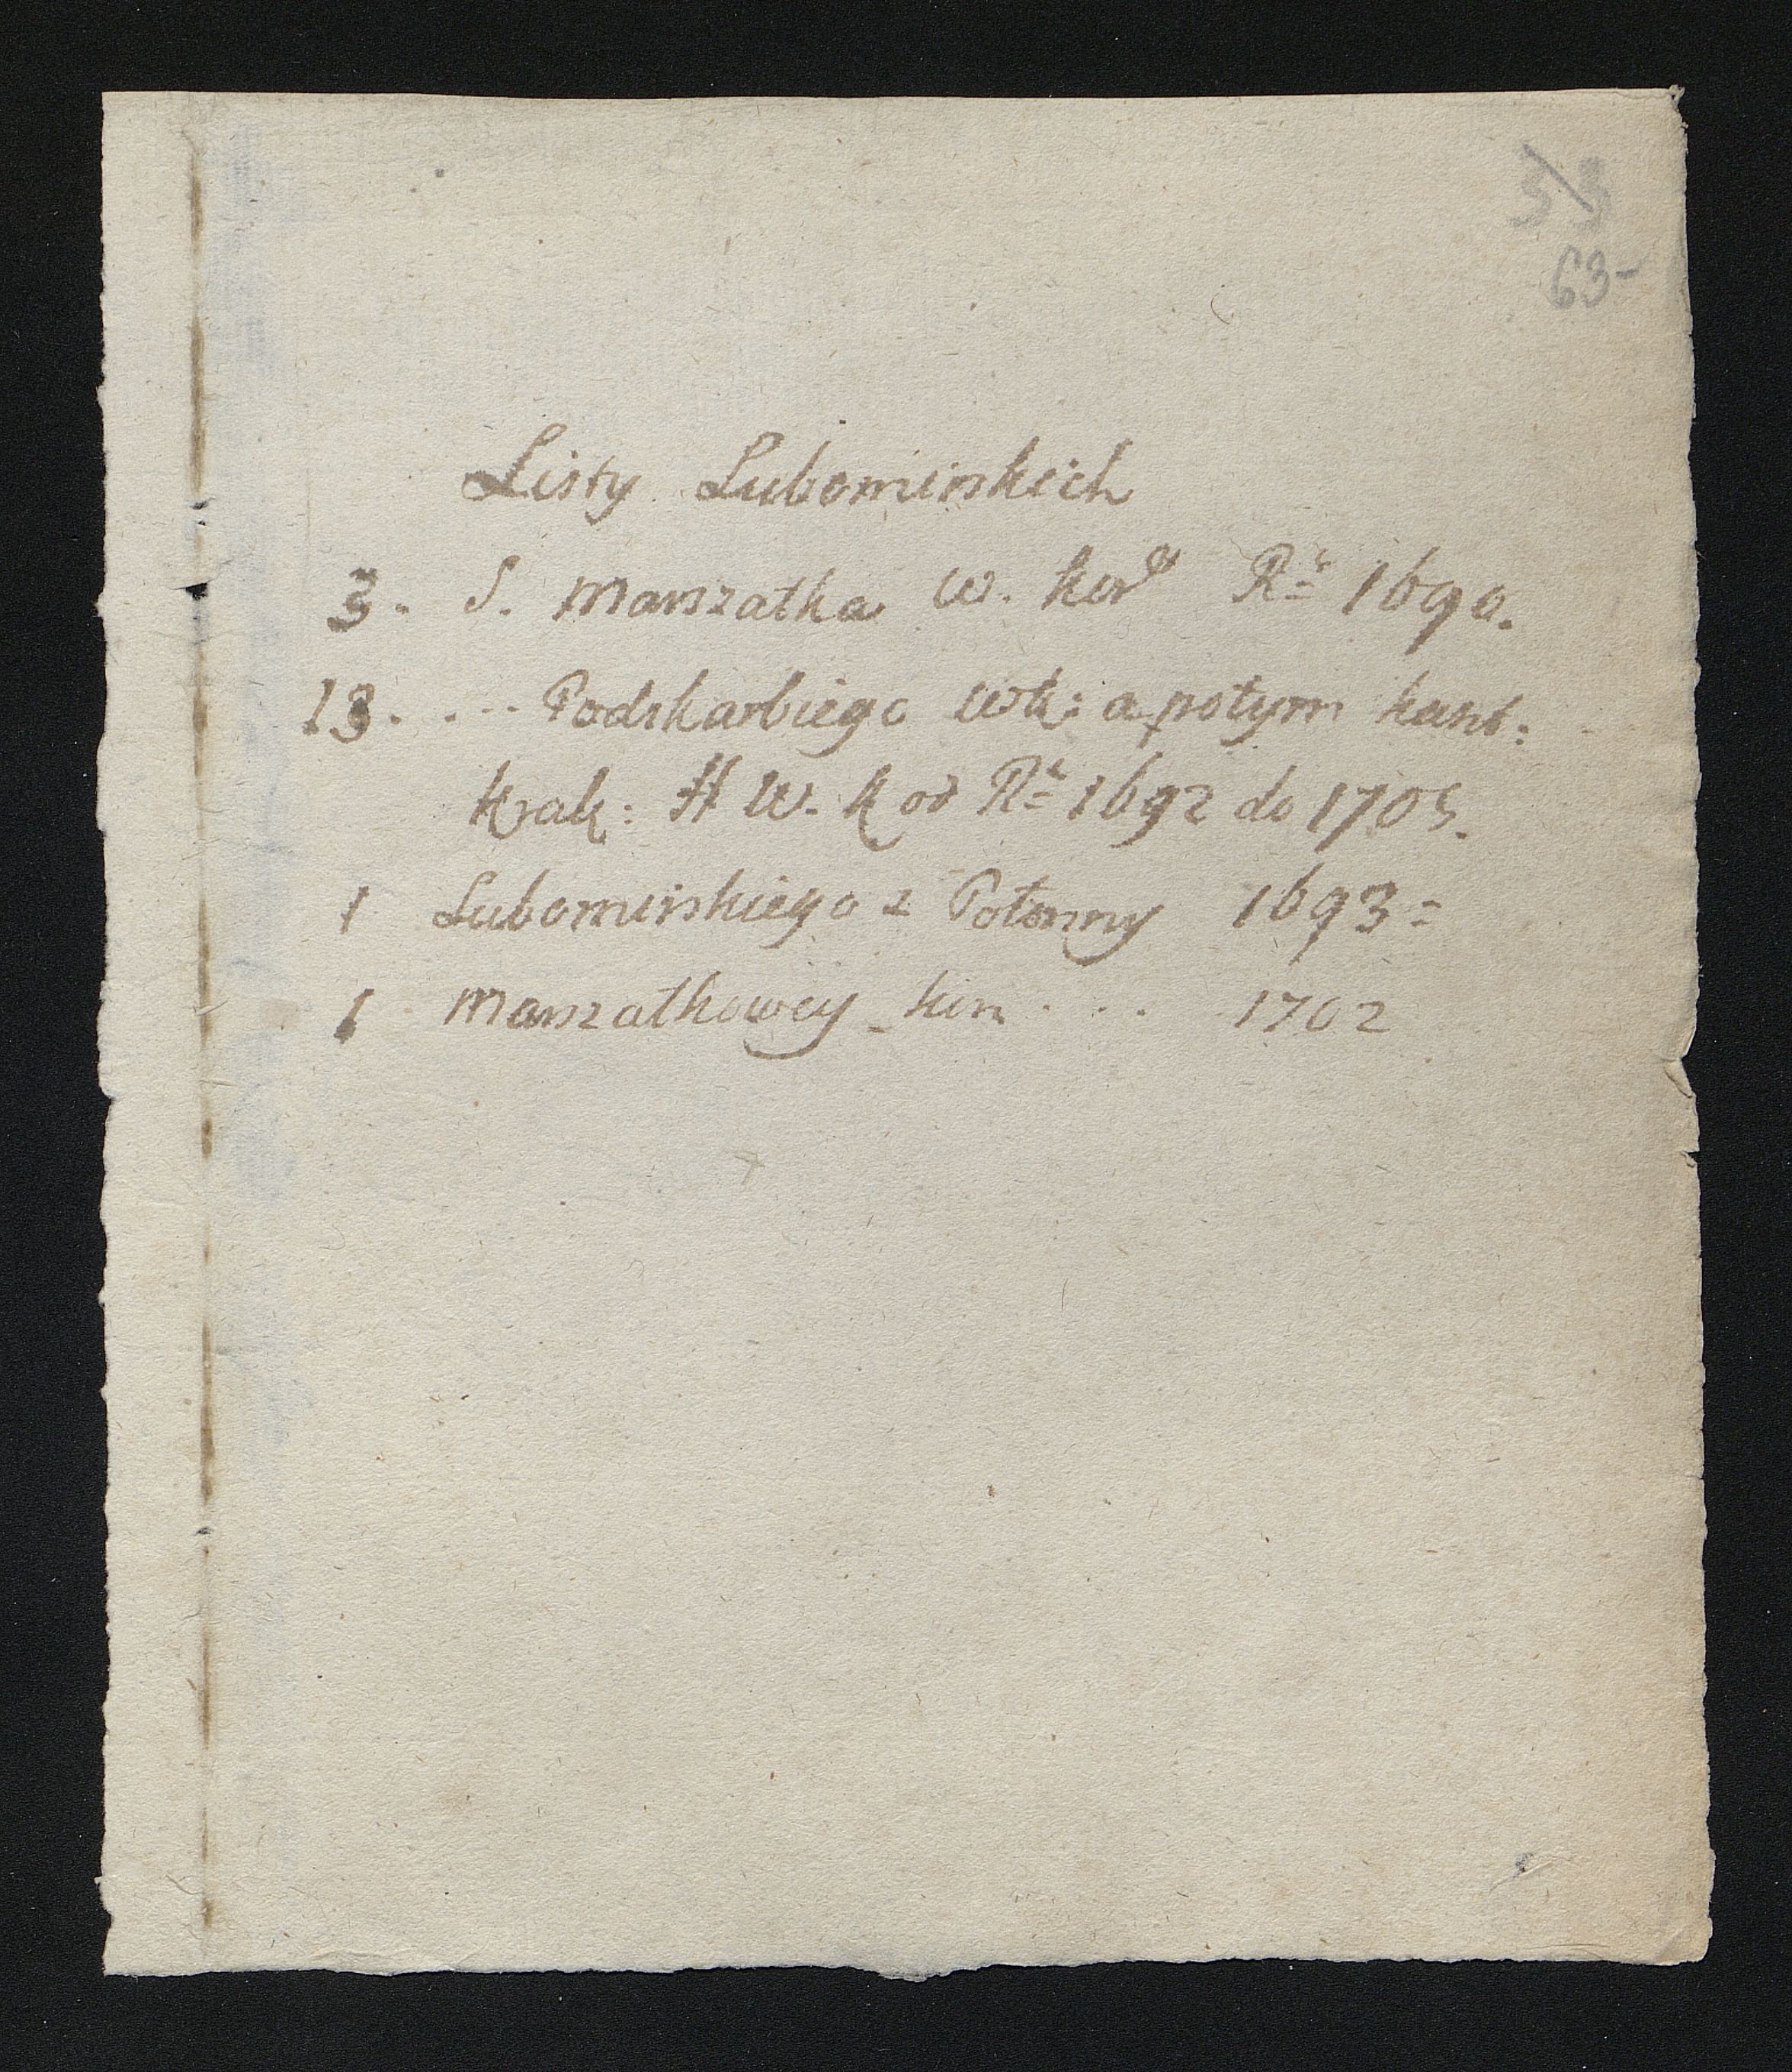 63-
Listy Lubomirskich
3. S. Marszałka W. kor Rº 1690.
13. . -- Podskarbiego Wk: a potym kaszt:
Krak: H W. K od Rº 1692 do 1705.
1 Lubomirskiego z 1693=
1 Marszałkowey . . . 1702